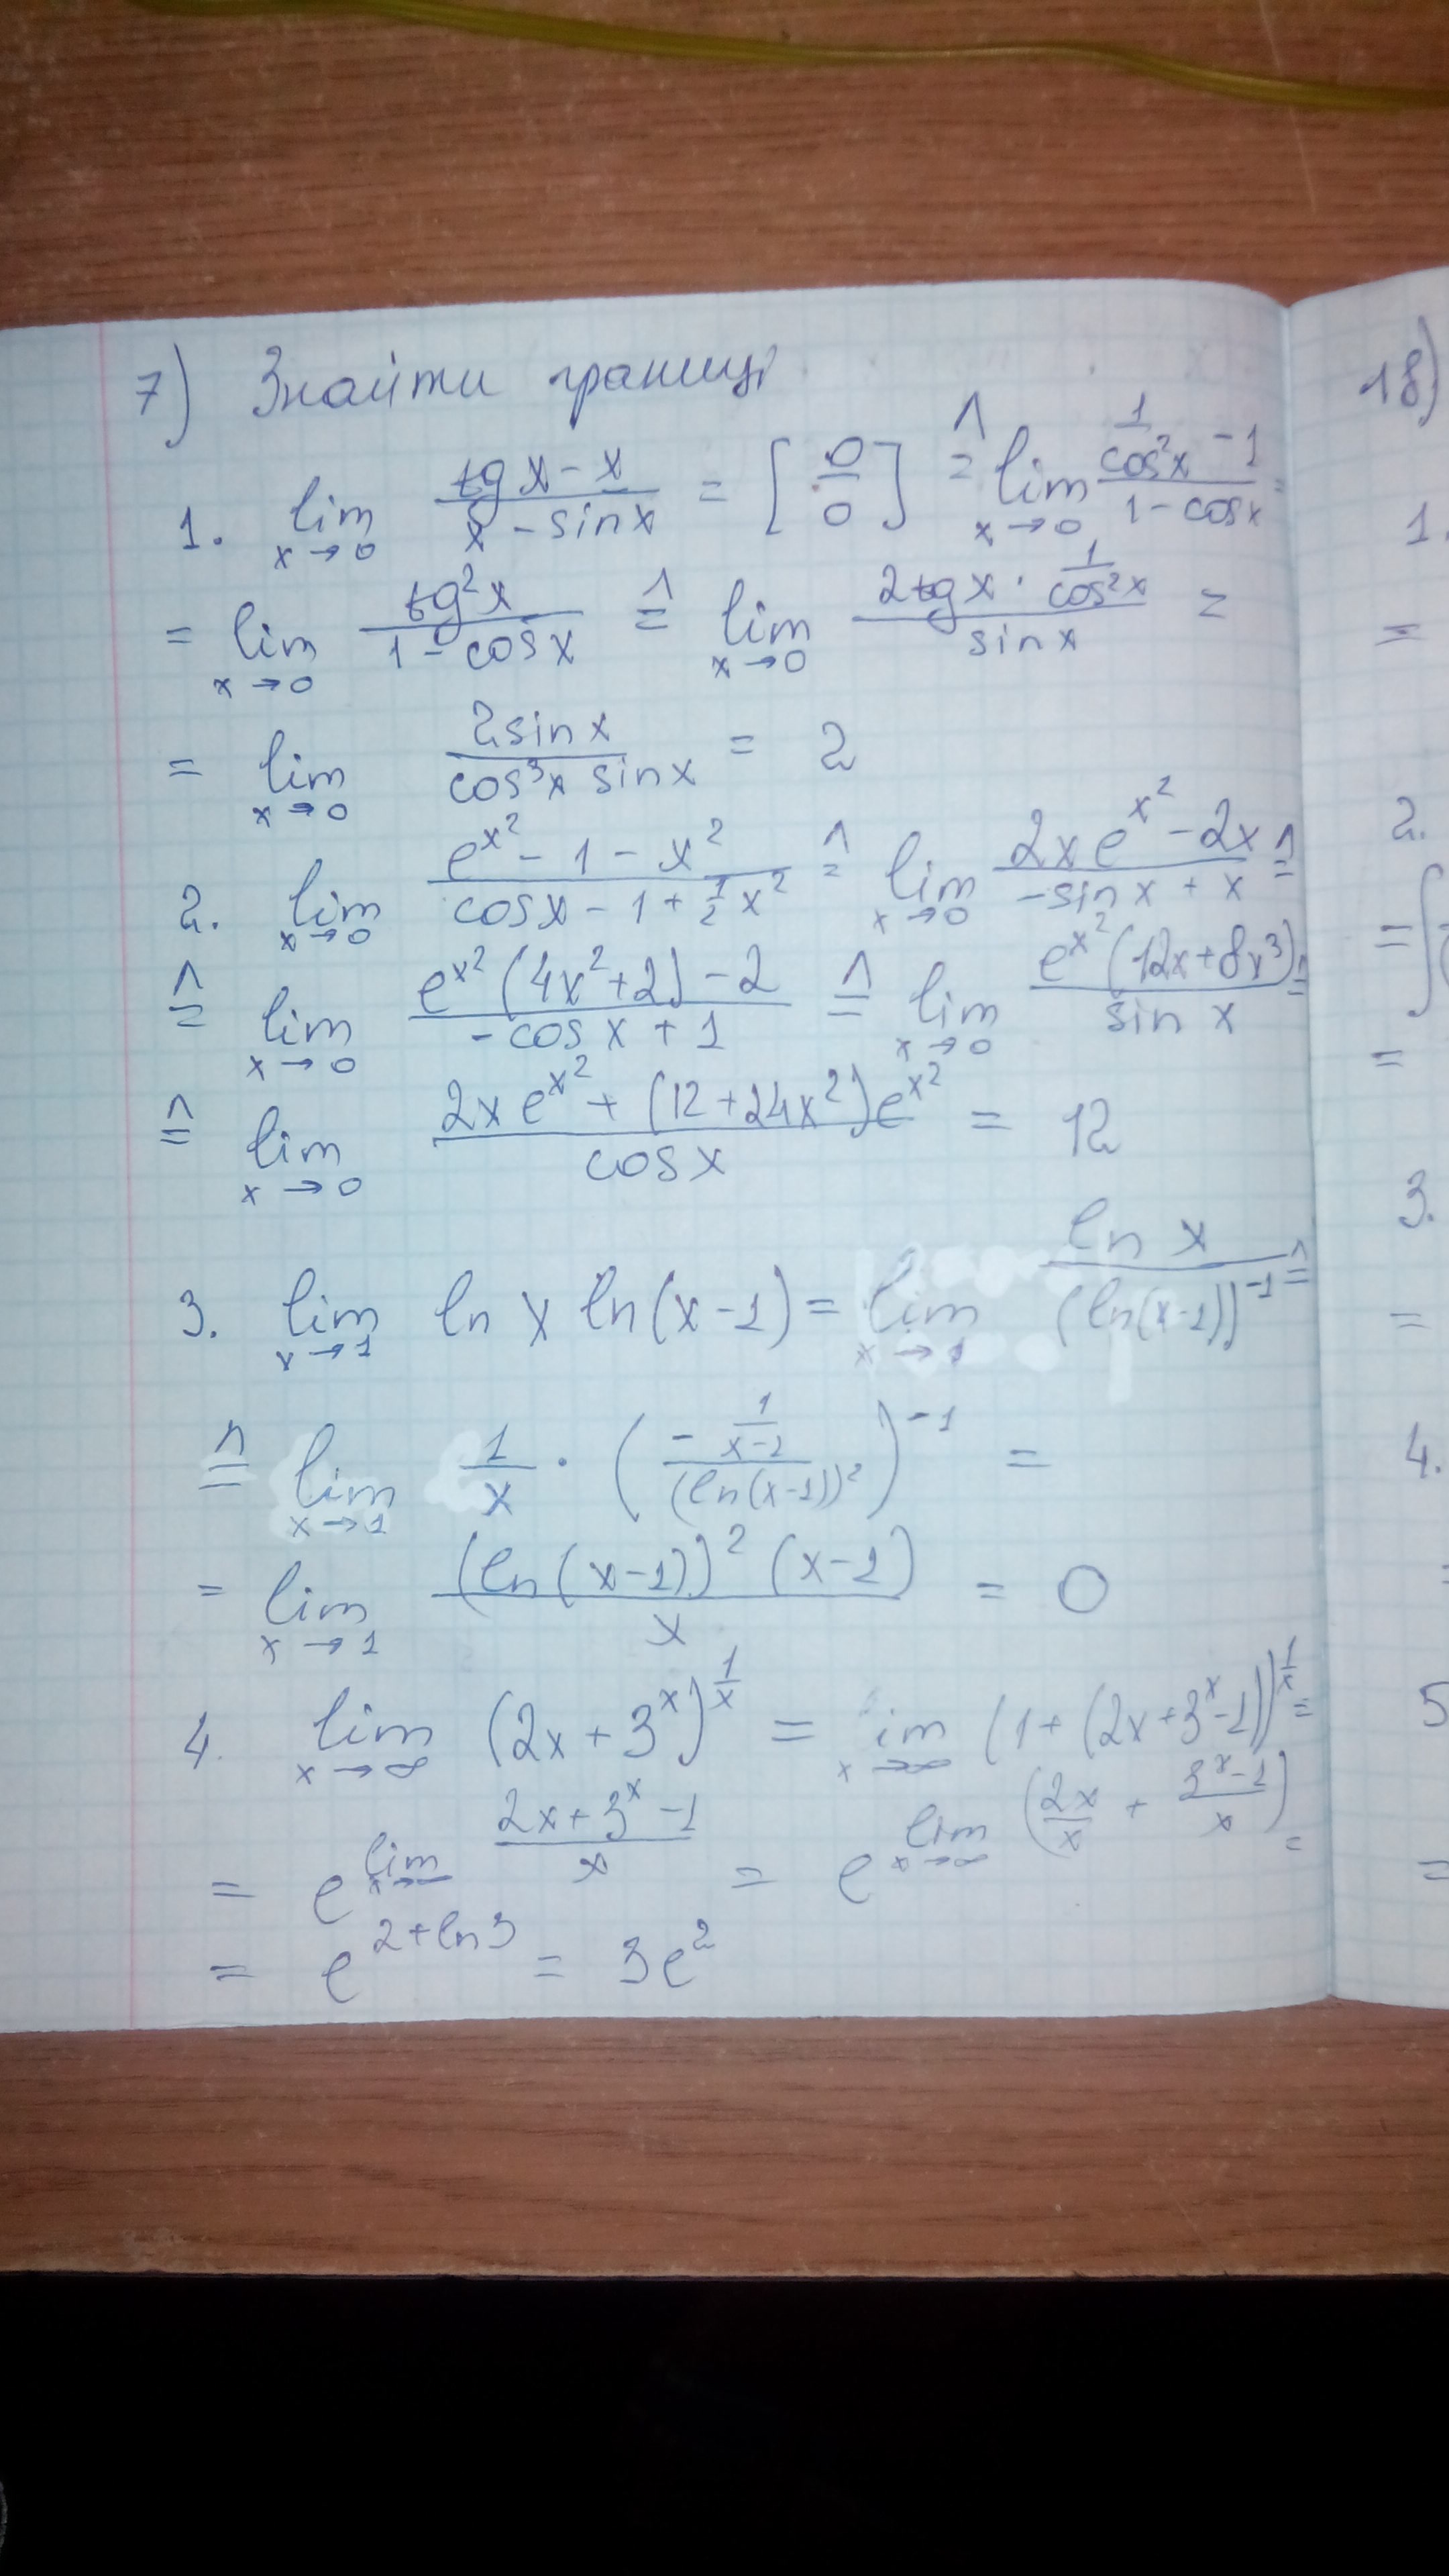 7) Знайти границі 18)
1. lim x→0 (tg x - x)/(x - sin x) = [0/0] ≙ lim x→0 (1/cos²x - 1)/(1 - cos x) = 1.
= lim x→0 tg²x/(1 - cos x) ≙ lim x→0 (2tg x · 1/cos²x)/sin x = =
= lim x→0 2sin x/(cos³x sin x) = 2
2. lim x→0 (e^x² - 1 - x²)/(cos x - 1 + 1/2 x²) ≙ lim x→0 (2x e^x² - 2x)/(-sin x + x) ≙ 2.
≙ lim x→0 (e^x² (4x² + 2) - 2)/(-cos x + 1) ≙ lim x→0 e^x² (12x + 8x³)/sin x ≙ =∫
≙ lim x→0 (2x e^x² + (12 + 24x²) e^x²)/cos x = 12 =
3. lim x→1 ln x ln(x-1) = lim x→1 ln x/(ln(x-1))^-1 ≙ 3.
=
≙ lim x→1 1/x · (-(1/(x-1))/(ln(x-1))²)^-1 = 4.
= lim x→1 (ln(x-1))² (x-1)/x = 0
4. lim x→∞ (2x + 3^x)^(1/x) = lim x→∞ (1 + (2x + 3^x - 1))^(1/x) = 5
= e^(lim x→∞ (2x + 3^x - 1)/x) = e^(lim x→∞ (2x/x + (3^x - 1)/x)) = =
= e^(2 + ln 3) = 3e²